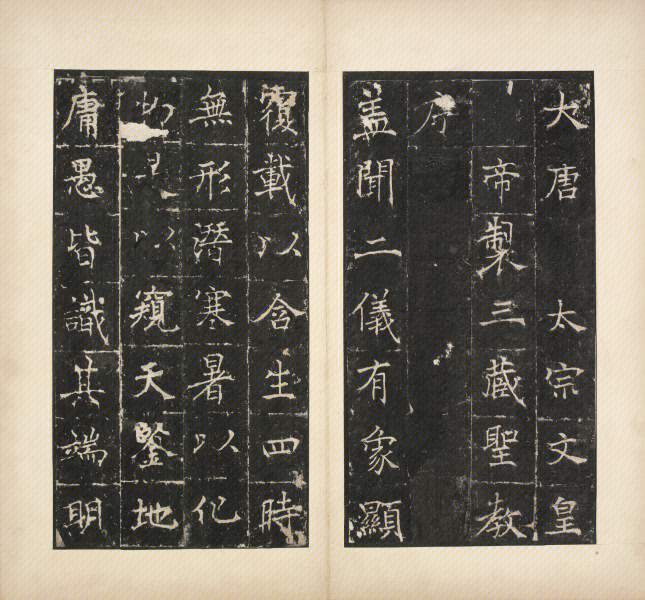 大唐 太宗文皇
帝製三藏聖教
序
盖聞二儀有象顯
覆載以含生四時
無形潛寒暑以化
物是以窺天鑒地
庸愚皆識其端明